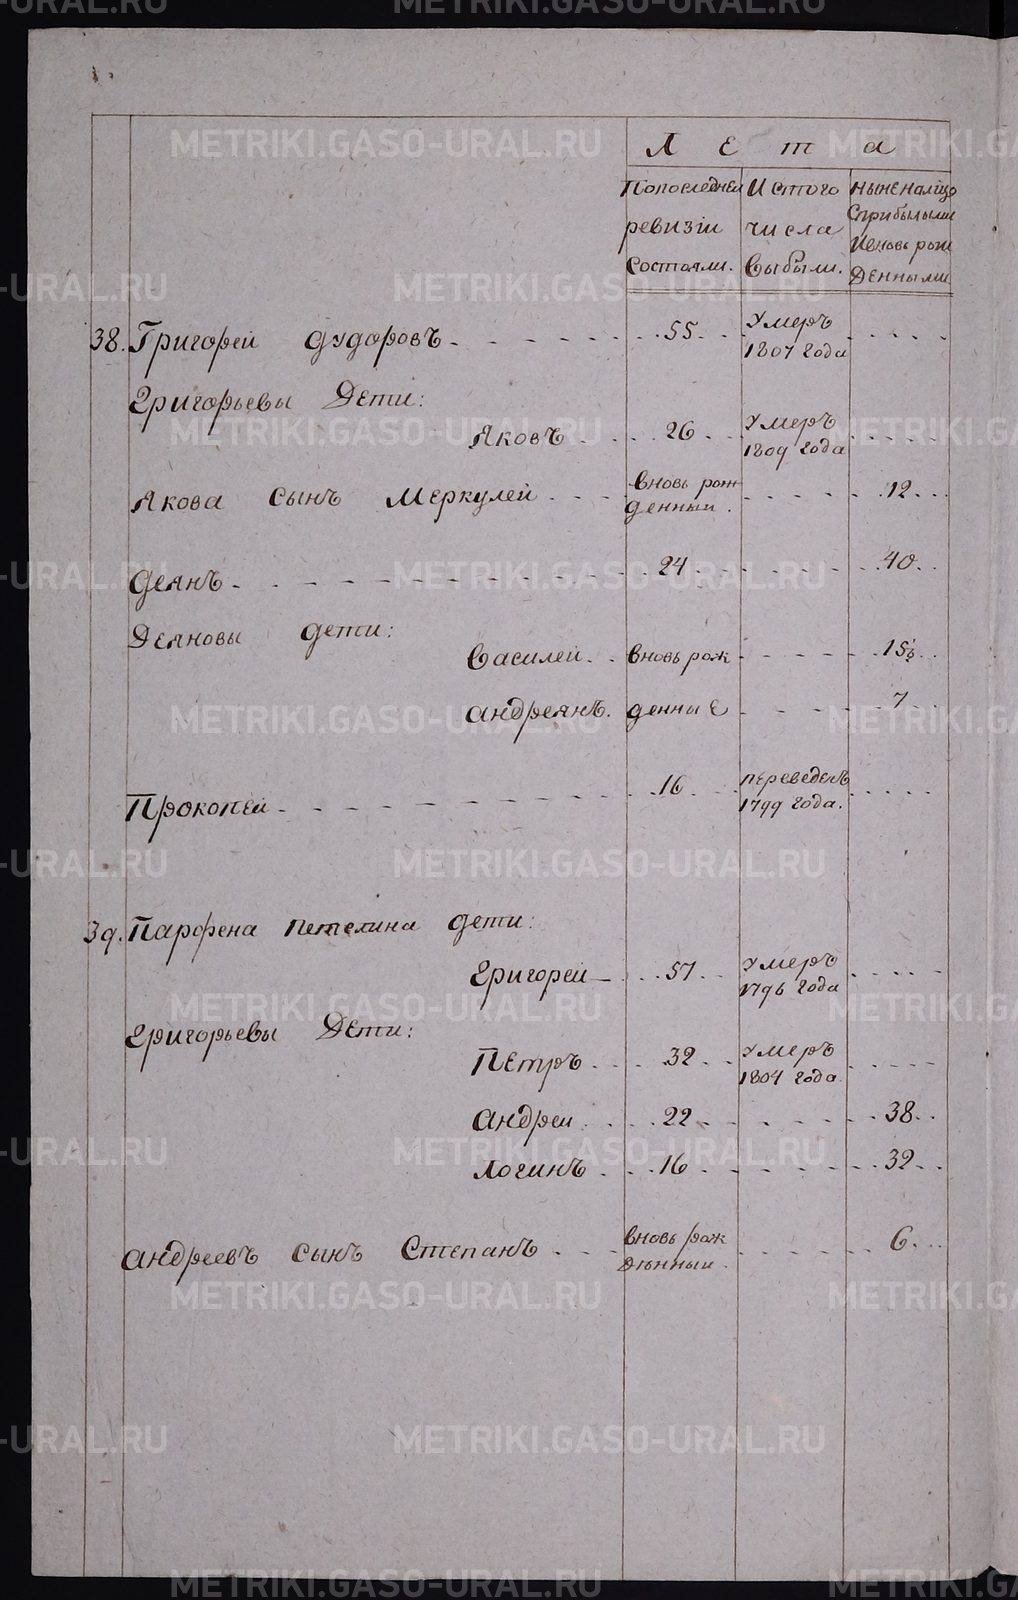 Лета
По последней ревизiи состояли.
Ис того числа выбыли.
Ныне на лицо с прибылыми и вновь рожденными
38. Григорей Дудоровъ 55 Умеръ 1807 года
Григорьевы Дети:
Яковъ 26 Умеръ 1809 года
Якова сынъ Меркулей вновь рожденный 12
Деянъ 24 40
Деяновы дети:
Василей вновь рож 15
Андреянъ денные 7
Прокопей 16 переведенъ 1799 года.
39. Парфена Петелина дети:
Григорей 57 Умеръ 1796 года
Григорьевы Дети:
Петръ 32 Умеръ 1804 года
Андрей 22 38
Логинъ 16 32
Андреевъ сынъ Степанъ вновь рожденный 6
METRIKI.GASO-URAL.RU